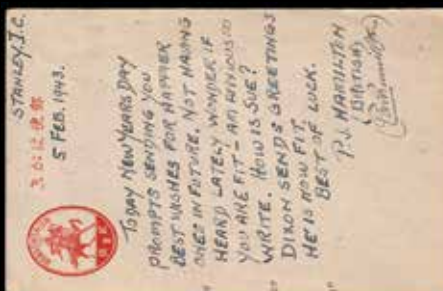 STANLEY. I.C.
5 FEB. 1943.
TODAY NEW YEARS DAY
PROMPTS SENDING YOU
BEST WISHES FOR HAPPIER
ONES IN FUTURE. NOT HAVING
HEARD LATELY WONDER IF
YOU ARE FIT - AM ANXIOUS SO
WRITE. HOW IS SUE?
DIXON SENDS GREETINGS
HE IS NOW FIT.
BEST OF LUCK.
P.J. HAMILTON
(BRITISH)